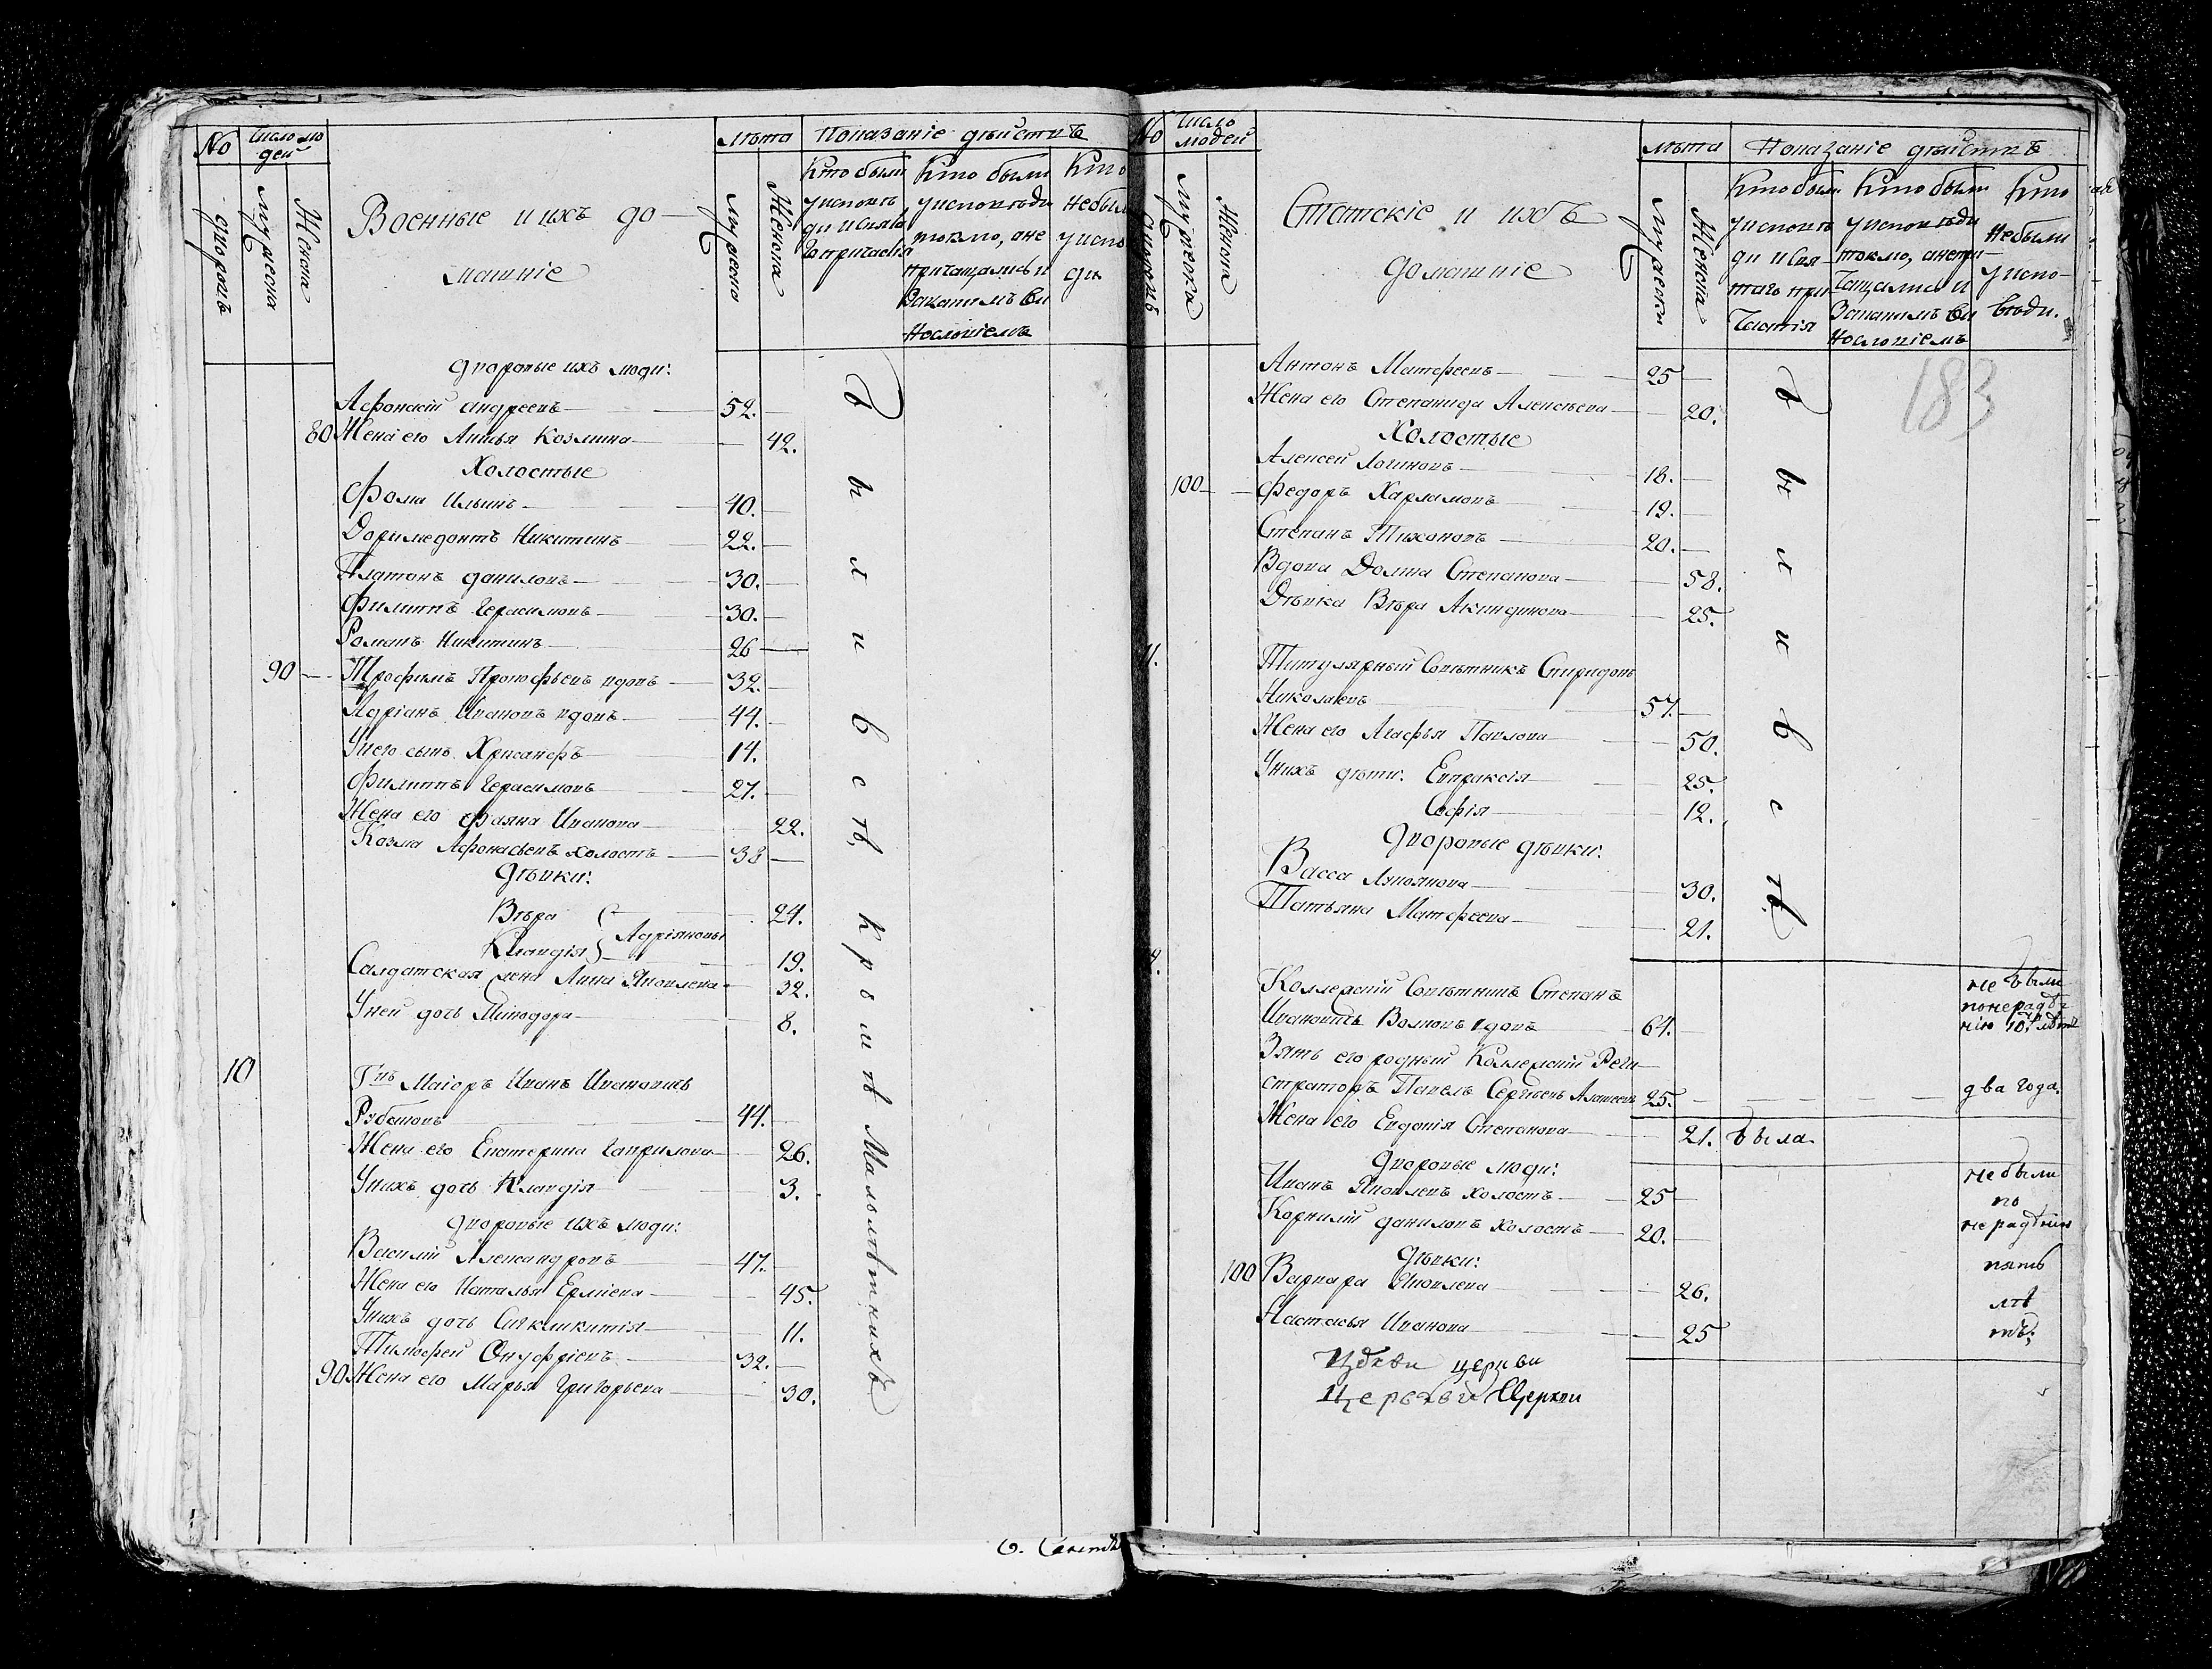 No
Число лю
дей
Лѣта
Показаніе дѣйствъ
дворовъ
Мужеска
Женска
Военные и ихъ до-
машніе
Мужеско
Женска
Кто были
у исповѣ
ди и святa
го причастія
Кто были
у исповѣди
токмо, а не
причащались и
за какимъ ви
нословіемъ
Кто
не был
у испо
ди
дворовые ихъ люди:
Афонасій Андреевъ 52.
80 Жена его Анисья Козмина 42.
Холостые
Фома Ильинъ 40.
Доримедонтъ Никитинъ 22.
Платонъ Даниловъ 30.
Филиппъ Герасимовъ 30.
Романъ Никитинъ 26
90 Трофимъ Прокофьевъ вдовъ 32.
Адріанъ Ивановъ вдовъ 44.
У него сынъ Хрисанфъ 14.
Филиппъ Герасимовъ 27.
Жена его Ивановa 22.
Козма Афонасьевъ холостъ 38
Дѣвки:
Вѣра 24.
Адріановы
Клавдія 19.
Салдатская жена Анна Яковлева 32.
У ней дочь Минодора 8.
10 Г-нъ Маіоръ Иванъ Ивановичь
44.
Жена его Екатерина Гаврилова 26.
У нихъ дочь Клавдія 3.
дворовые ихъ люди:
Василій Александровъ 47.
Жена его Наталья Ермiева 45.
У нихъ дочь Синкликитія 11.
Тимофей Онуфріевъ 32.
90 Жена его Марья Григорьева 30.
были всѣ, кромѣ малолѣтнихъ
No
Число
людей
Лѣта
Показаніе дѣйствъ
Мужеска
Женска
Статскіе и ихъ
домашніе
Мужеска
Женска
Кто были
у исповѣ
ди и свя
таго при
частія
Кто были
у исповѣди
токмо, а не при
чащались и
за какимъ ви
нословіемъ
Кто
не были
у испо-
вѣди.
183
Антонъ Матфеевъ 25
Жена его Степанида Алексѣева 20.
Холостые
Алексей Логиновъ 18.
100 Федоръ Харламовъ 19.
Степанъ Тихоновъ 20.
Вдова Домна Степанова 58.
Дѣвка Вѣра Акиндинова 25.
Титулярный Совѣтникъ Спиридонъ
Николаевъ 57.
Жена его Агафья Павлова 50.
У нихъ дѣти: Евпраксія 25.
Софія 12.
Дворовые дѣвки:
Васса Лукоянова 30.
Татьяна Матфеева 21.
были всѣ
Коллежскій Совѣтникъ Степанъ
Ивановичь Волковъ вдовъ 64.
не были
по нерадѣ
нію 10. лѣтъ
Зять его родный Коллежскій Реги-
страторъ Павелъ Сергѣевъ 25.
два года.
Жена его Евдокія Степанова 21. была
Дворовые люди:
Иванъ Яковлевъ холостъ 25
Корнилій Даниловъ холостъ 20.
Дѣвки:
100 Варвара Яковлева 26.
Настасья Иванова 25
не были
по
нерадѣнію
пять
лѣ
тъ,
церкви
Церкви